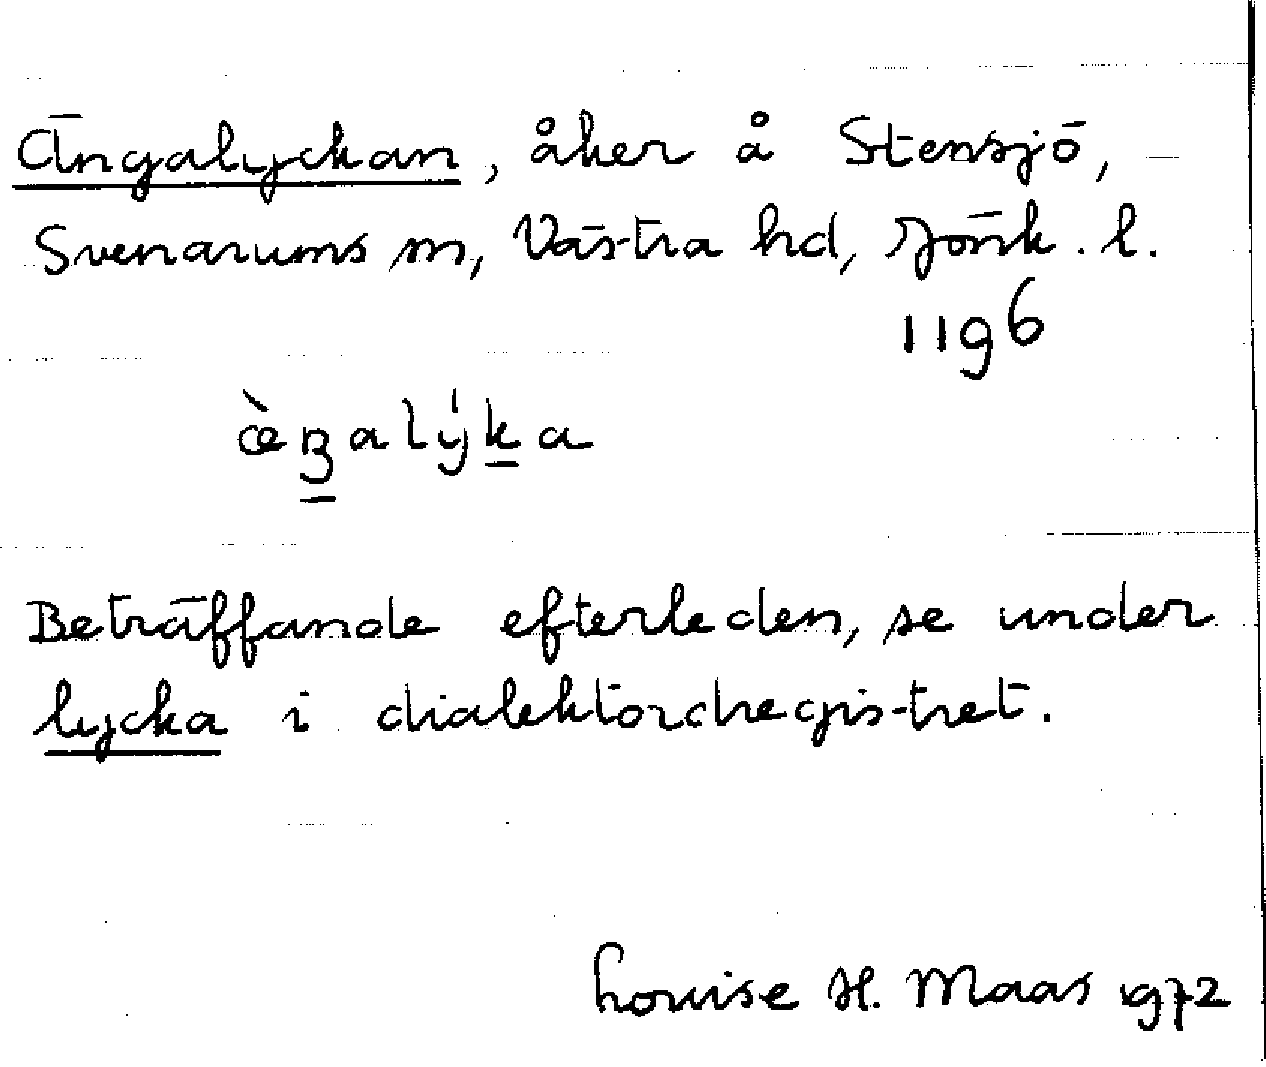 Ängalyckan, åker å Stensjö,
Svenarums sn, Västra hd, Jönk. l.
1196
Beträffande efterleden, se under
lycka i dialektordregistret.
Louise H. Maas 1972